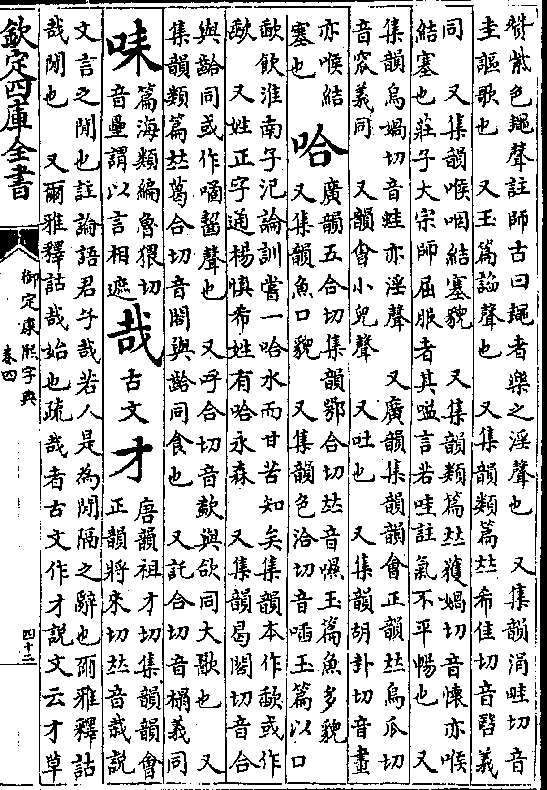 贊紫色䵷聲註師古曰䵷者樂之淫聲也　又集韻涓畦切音
圭謳歌也　又玉篇謟聲也　又集韻類篇𠀤希佳切音䜁義
同　又集韻喉咽結塞貌　又集韻類篇𠀤獲媧切音懷亦喉
結塞也莊子大宗師屈服者其嗌言若哇註氣不平暢也　又
集韻烏媧切音蛙亦淫聲　又廣韻集韻韻會正韻𠀤烏瓜切
音窊義同　又韻會小兒聲　又吐也　又集韻胡卦切音畫
亦喉結
塞也
哈
廣韻五合切集韻鄂合切𠀤音㬤玉篇魚多貌
又集韻魚口貌　又集韻色洽切音歃玉篇以口
歃飲淮南子氾論訓嘗一哈水而甘苦知矣集韻本作歃或作
㰱　又姓正字通楊慎希姓有哈永森　又集韻曷閤切音合
與𣣹同或作嗑𪗶聲也　又呼合切音欱與欱同大歠也　又
集韻類篇𠀤葛合切音閤與𪗶同食也　又託合切音榻義同
㖇
篇海類編魯猥切
音壘謂以言相遮
哉
古文
才
唐韻祖才切集韻韻會
正韻將來切𠀤音栽說
文言之閒也註論語君子哉若人是為閒隔之辭也爾雅釋詁
哉閒也　又爾雅釋詁哉始也疏哉者古文作才說文云才草
欽定四庫全書
御定康熙字典
卷四
四十二